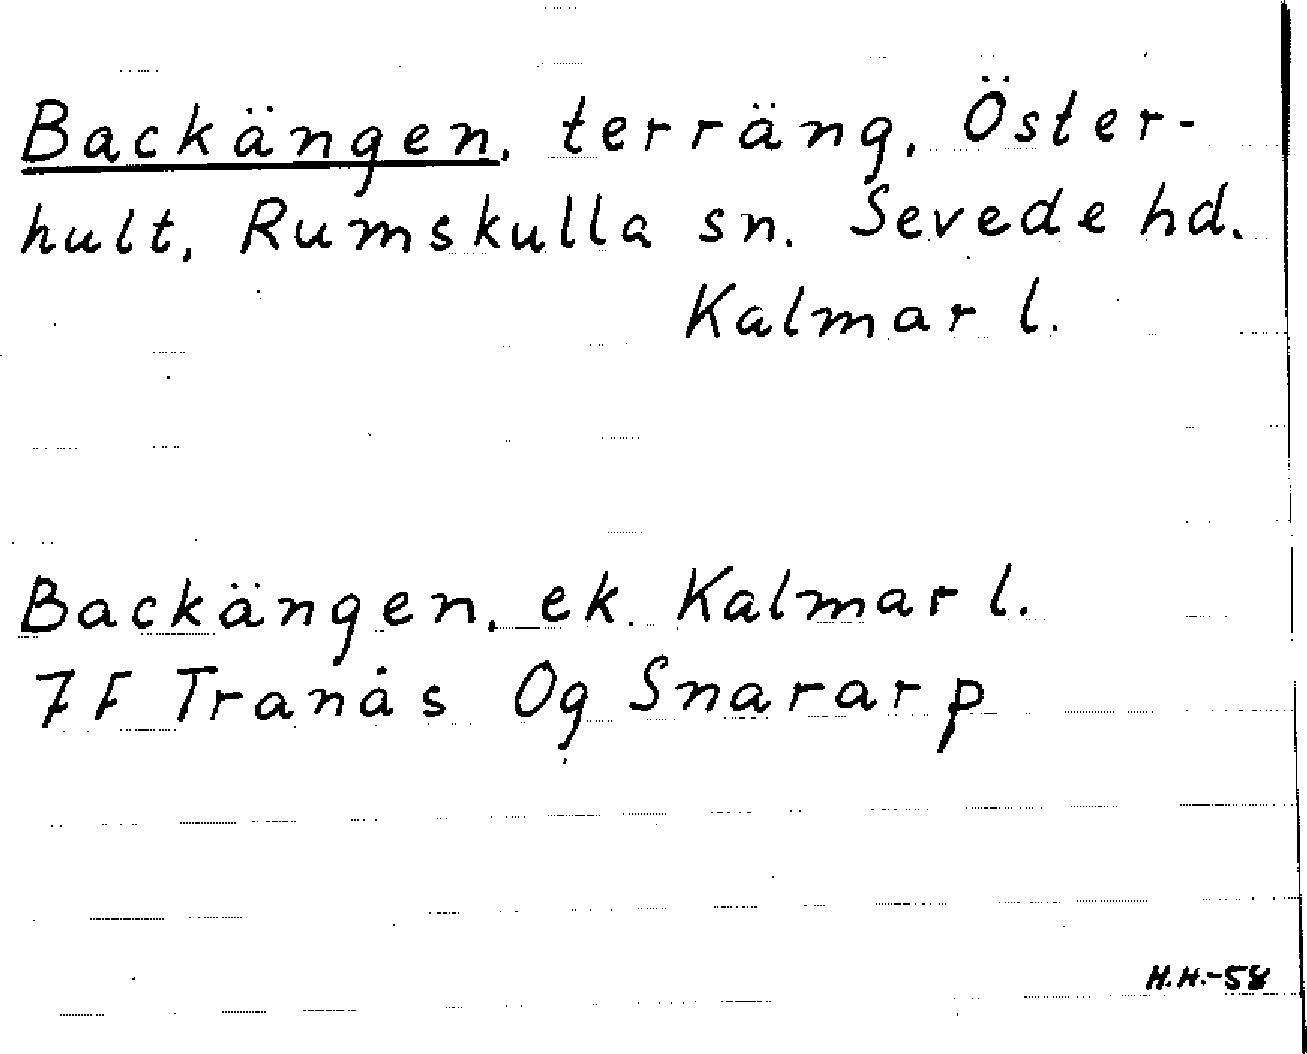 Backängen, terräng, Öster-
hult, Rumskulla sn. Sevede hd.
Kalmar l.
Backängen, ek. Kalmar l.
7F Tranås Og Snararp
H.H.-58